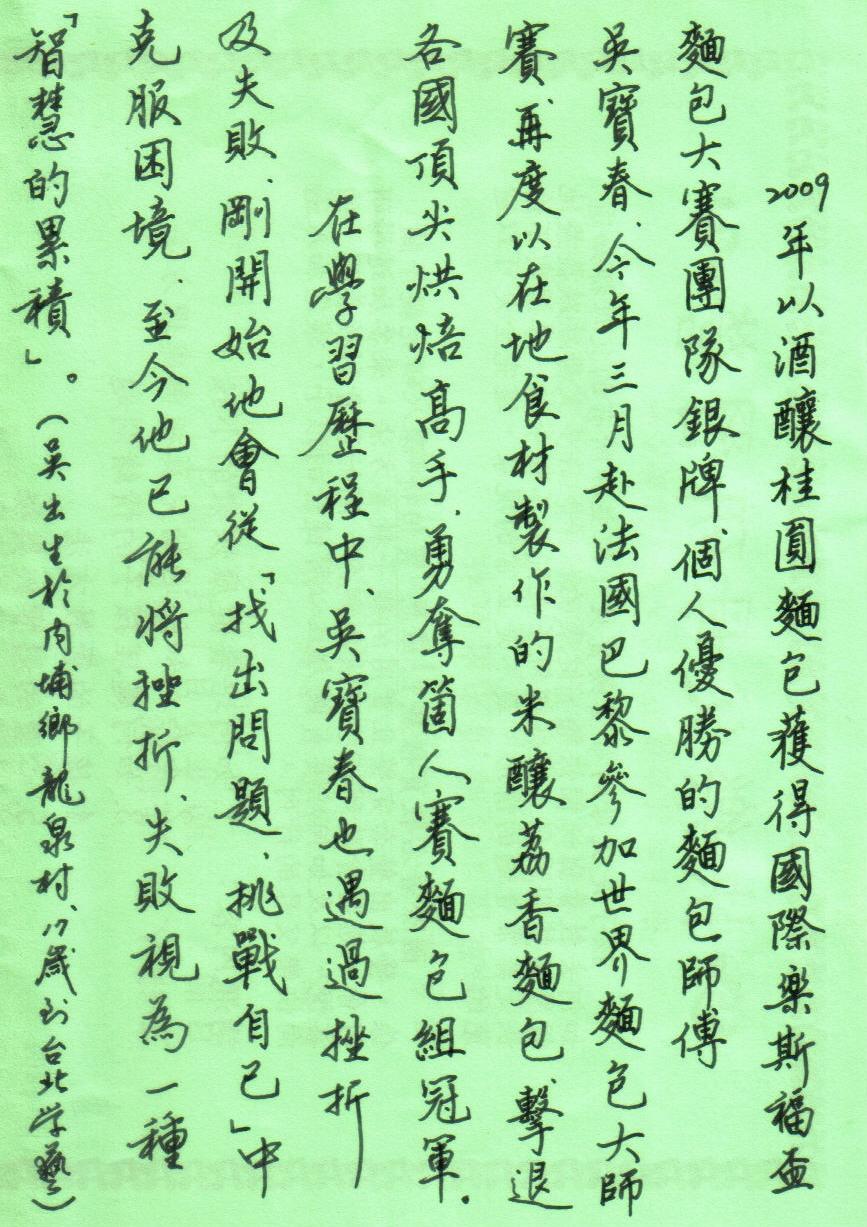 2009年以酒釀桂圓麵包獲得國際樂斯福盃
麵包大賽團隊銀牌、個人優勝的麵包師傅
吳寶春、今年三月赴法國巴黎參加世界麵包大師
賽、再度以在地食材製作的米釀荔香麵包、擊退
各國頂尖烘焙高手、勇奪箇人賽麵包組冠軍。
在學習歷程中、吳寶春也遇過挫折
及失敗、剛開始他會從「找出問題、挑戰自己」中
克服困境、至今他已能將挫折、失敗視為一種
「智慧的累積」。(吳出生於內埔鄉龍泉村、17歲到台北学藝)